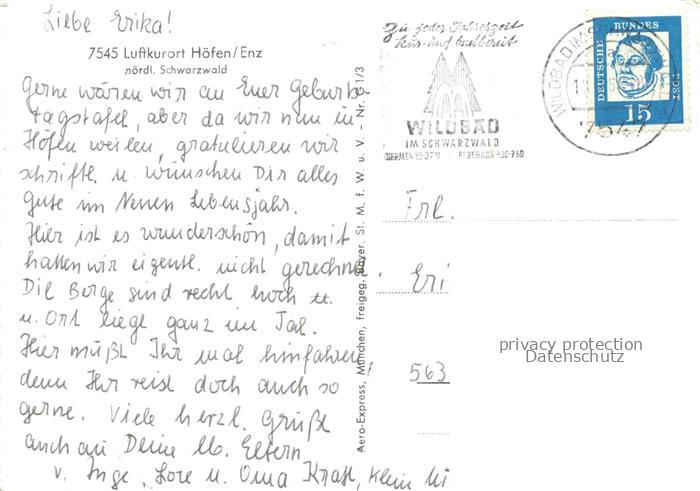 Liebe Erika!
7545 Luftkurort Höfen/Enz
nördl. Schwarzwald
Gerne wären wir an Euer Geburts-
tagstafel, aber da wir nun in
Höfen weilen, gratulieren wir
schriftl. u. wünschen Dir alles
Gute im Neuen Lebensjahr.
Hier ist es wunderschön, damit
hatten wir eigentl. nicht gerechnet.
Die Berge sind recht hoch u.
u. Ort liegt ganz im Tal.
Hier müßt Ihr mal hinfahren
denn Ihr reist doch auch so
gerne. Viele herzl. Grüße
auch an Deine lb. Eltern
v. Inge, Lore u. Oma Kraft, Klein
Aero-Express, München, freigeg. Bayer. St. M. f. W. u. V. - Nr. G 1/3
Zu jeder Jahreszeit
kur- und badbereit
WILDBAD
IM SCHWARZWALD
THERMEN
BERGBAHN 430-750
WILDBAD IM
7547
DEUTSCHE
BUNDES
POST
15
Frl.
Eri
563
privacy protection
Datenschutz